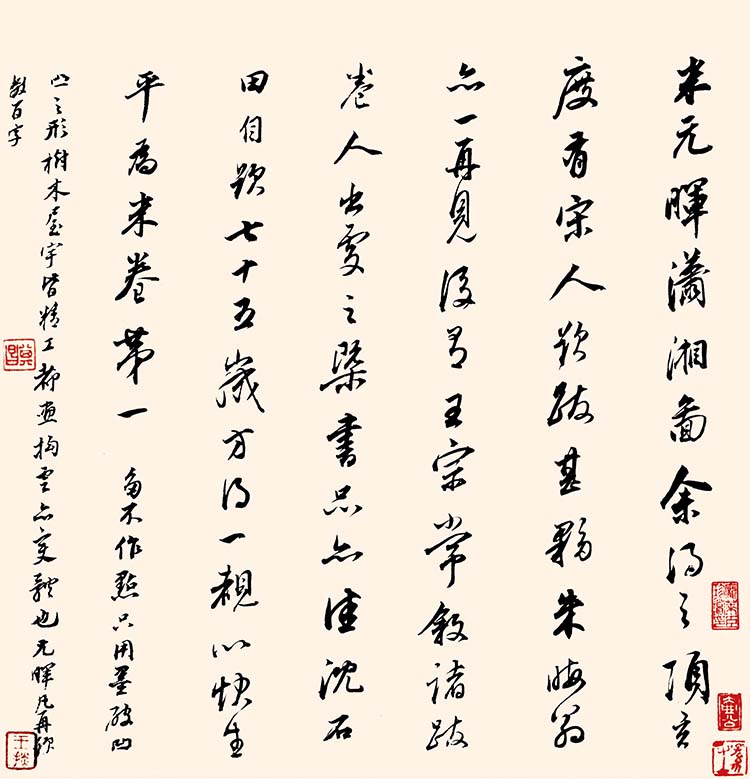 米元暉瀟湘畵余得之項玄
度有宋人題跋甚夥朱晦翁
亦一再見後有王宗常叙諸跋
卷人出處之槩書品亦佳沈石
田自題七十五歲方得一覩以快生
平為米卷第一 多不作點只用墨破凹
凸之形樹木屋宇皆精工都畫拘雲亦變體也元暉凡再題
數百字